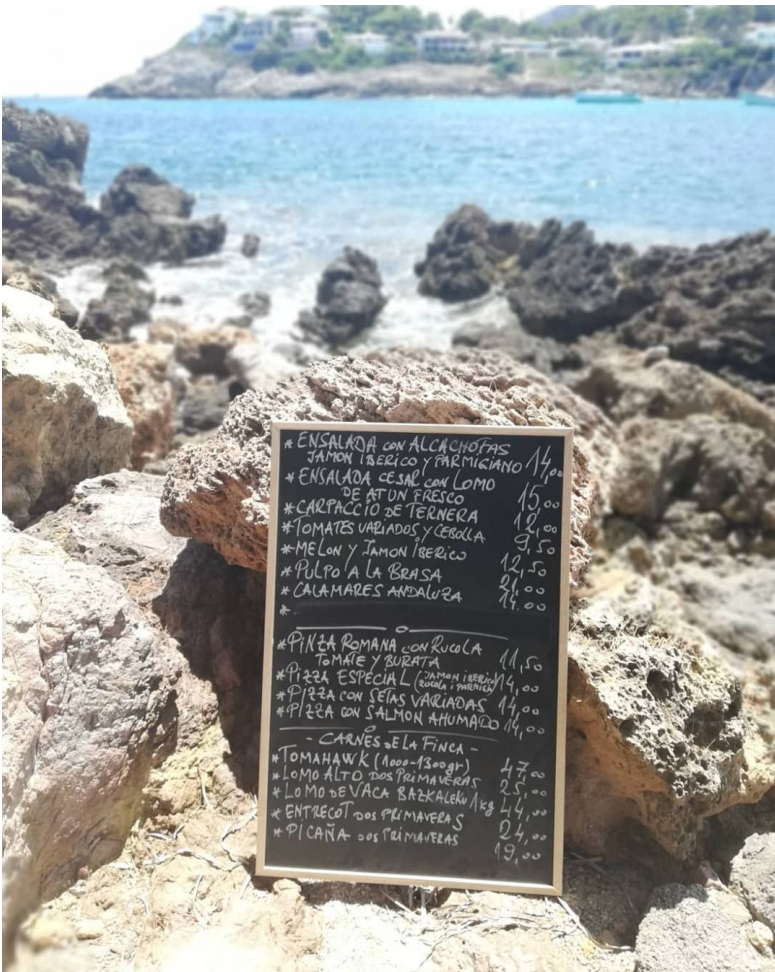 * ENSALADA CON ALCACHOFAS
JAMON IBERICO Y PARMIGIANO 14,00
* ENSALADA CESAR CON LOMO
DE ATUN FRESCO 15,00
* CARPACCIO DE TERNERA 12,00
* TOMATES VARIADOS Y CEBOLLA 9,50
* MELON Y JAMON IBERICO 12,50
* PULPO A LA BRASA 21,00
* CALAMARES ANDALUZA 14,00
*
* PINZA ROMANA CON RUCOLA
TOMATE Y BURATA 11,50
* PIZZA ESPECIAL (JAMON IBERICO
RUCOLA i PARMIGI) 14,00
* PIZZA CON SETAS VARIADAS 14,00
* PIZZA CON SALMON AHUMADO 14,00
- CARNES DE LA FINCA -
* TOMAHAWK (1000-1300gr) 47,00
* LOMO ALTO DOS PRIMAVERAS 25,00
* LOMO DE VACA BAZKALEKU 1kg 44,00
* ENTRECOT DOS PRIMAVERAS 24,00
* PICAÑA DOS PRIMAVERAS 19,00